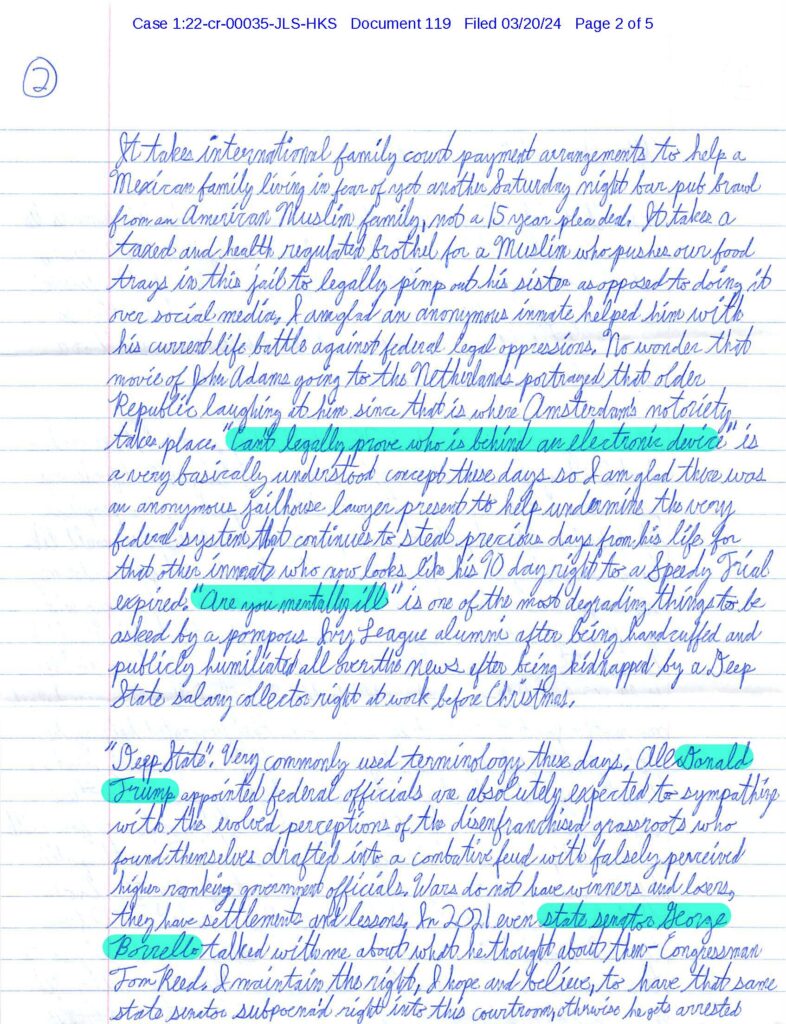 Case 1:22-cr-00035-JLS-HKS Document 119 Filed 03/20/24 Page 2 of 5
2
It takes international family court payment arrangements to help a
Mexican family living in fear of yet another Saturday night bar pub brawl
from an American Muslim family, not a 15 year plea deal. It takes a
taxed and health regulated brothel for a Muslim who pushes our food
trays in this jail to legally pimp out his sister as opposed to doing it
over social media. I am glad an anonymous inmate helped him with
his current life battle against federal legal oppressions. No wonder that
movie of John Adams going to the Netherlands portrayed that older
Republic laughing at him since that is where Amsterdam's notoriety
takes place. "Can't legally prove who is behind an electronic device" is
a very basically understood concept these days so I am glad there was
an anonymous jailhouse lawyer present to help undermine the very
federal system that continues to steal precious days from his life for
that other inmate who now looks like his 90 day right to a Speedy Trial
expired. "Are you mentally ill" is one of the most degrading things to be
asked by a pompous Ivy League alumni after being handcuffed and
publicly humiliated all over the news after being kidnapped by a Deep
State salary collector right at work before Christmas.
"Deep State". Very commonly used terminology these days. All Donald
Trump appointed federal officials are absolutely expected to sympathize
with the evolved perceptions of the disenfranchised grassroots who
found themselves drafted into a combative feud with falsely perceived
higher ranking government officials. Wars do not have winners and losers,
they have settlements and lessons. In 2021 even state senator George
Borrello talked with me about what he thought about then-Congressman
Tom Reed. I maintain the right, I hope and believe, to have that same
state senator subpoena'd right into this courtroom, otherwise he gets arrested